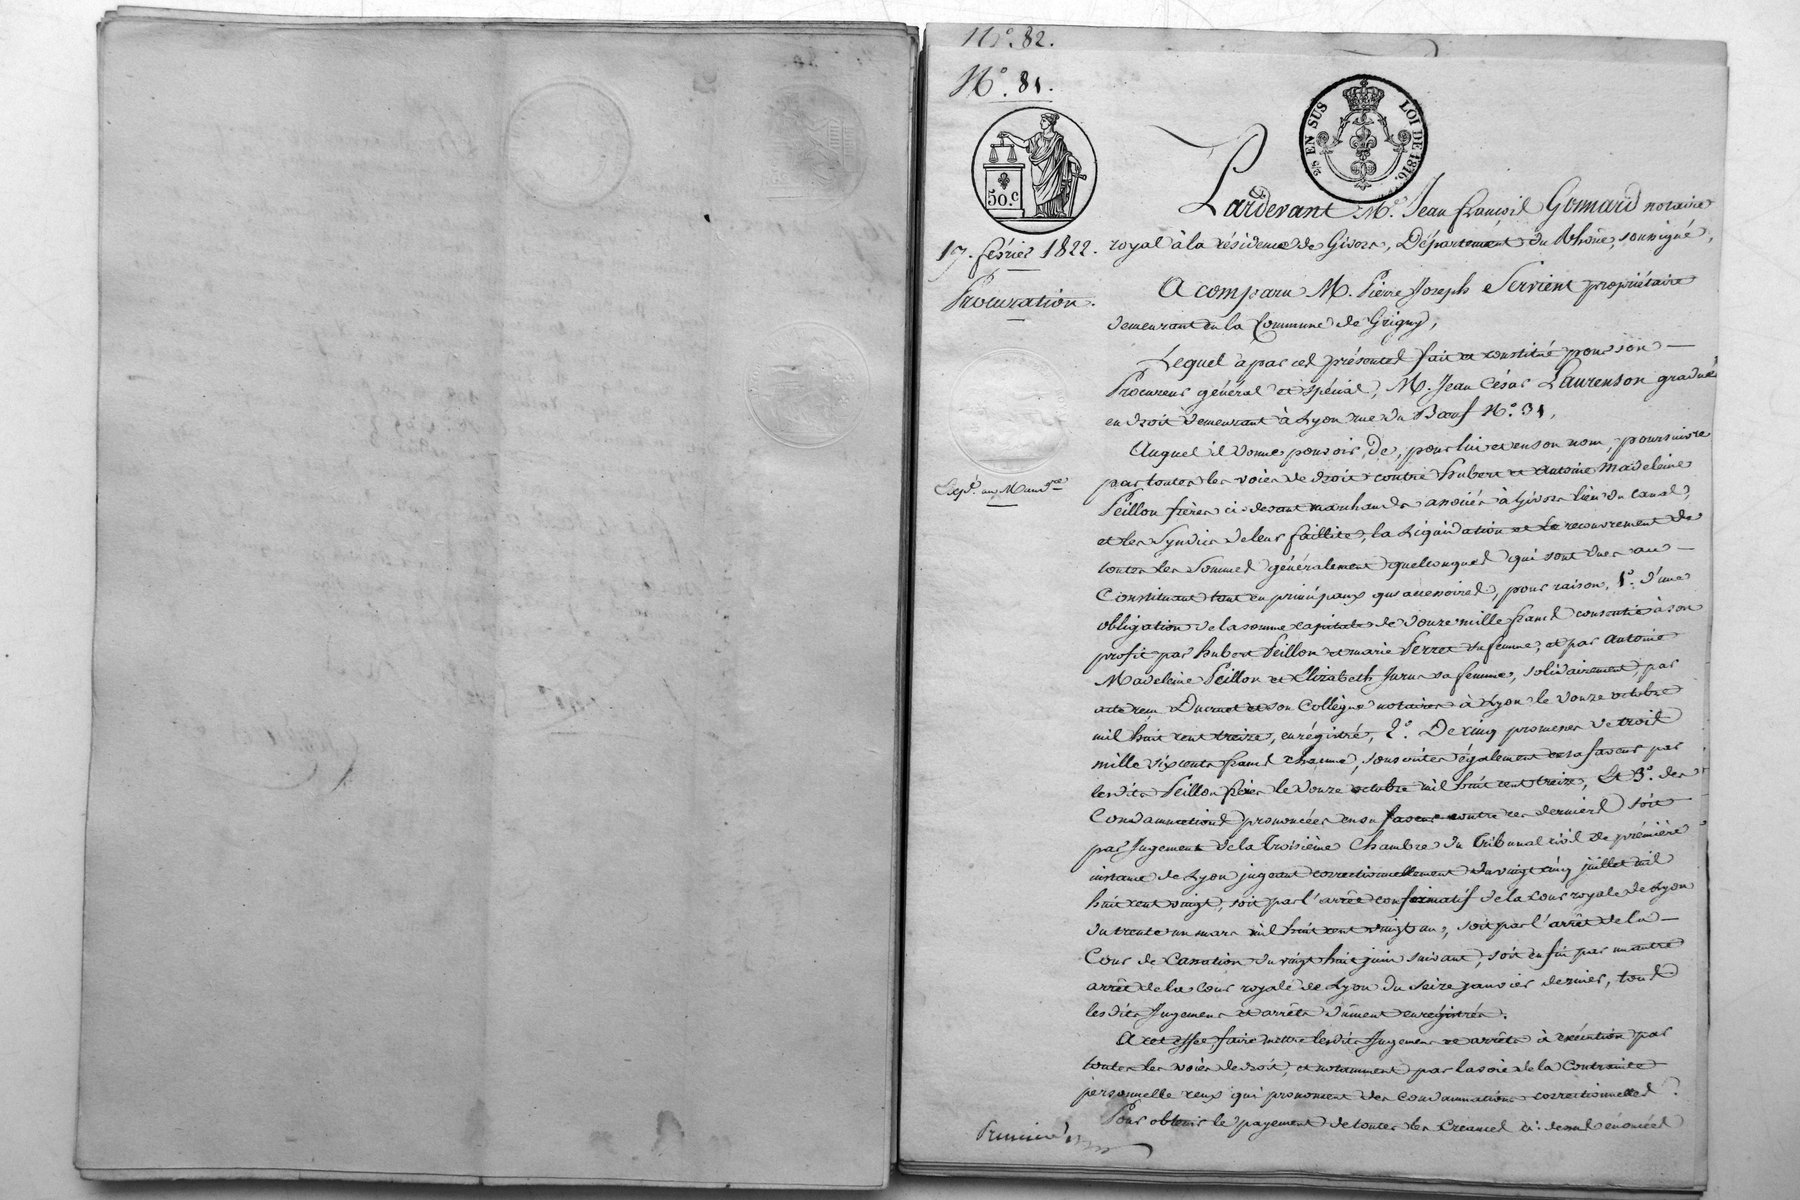 N.° 82.
N.° 81.
2/5 EN SUS LOI DE 1816.
50.c
17. février 1822.
Procuration.
Exp.é au Mand.re
Pardevant M.e Jean françois Gonnard notaire
royal à la résidence de Givors, Département du Rhône, soussigné,
A comparu M. Pierre Joseph Servient propriétaire
demeurant en la Commune de Grigny,
Lequel a par ces présentes fait et constitué pour son —
Procureur général et spécial, M. Jean César Laurenson gradué
en droit demeurant à Lyon rue du Bœuf N.° 31,
Auquel il donne pouvoir, de, pour lui et en son nom, poursuivre
par toutes les voies de droit contre hubert et Antoine Madeleine
Peillon frères ci-devant marchands associés à Givors lieu du Canal,
et les Syndics de leur faillite, la Liquidation et le recouvrement de
toutes les Sommes généralement quelconques qui sont dues au —
Constituant tant en principaux qu'accessoires, pour raison, 1.° d'une
obligation de la somme capitale de douze mille francs consentie à son
profit par hubert Peillon et marie Perret sa femme, et par antoine
Madeleine Peillon et Elizabeth Jurus sa femme, solidairement, par
acte reçu Ducruet et son Collègue notaires à Lyon le douze octobre
mil huit cent treize, enrégistré, 2.° De cinq promesses de trois
mille six cents francs chacune, souscrites également en sa faveur par
lesdits Peillon frères le douze octobre mil huit cent treize, Et 3.° des
Condamnations prononcées en sa faveur contre ces derniers soit
par Jugement de la troisième Chambre du Tribunal civil de première
instance de Lyon jugeant correctionnellement du vingt cinq juillet mil
huit cent vingt, soit par l'arrêt confirmatif de la Cour royale de Lyon
du trente un mars mil huit cent vingt un, soit par l'arrêt de la —
Cour de Cassation du vingt huit juin suivant, soit enfin par un autre
arrêt de la Cour royale de Lyon du seize janvier dernier, tous
lesdits Jugement et arrêts dûment enregistrés.
A cet effet, faire mettre lesdits Jugement et arrêts à exécution par
toutes les voies de droit, et notamment par la voie de la Contrainte
personnelle ceux qui prononcent des condamnations correctionnelles ;
Pour obtenir le payement de toutes les Créances ci-dessus énoncées